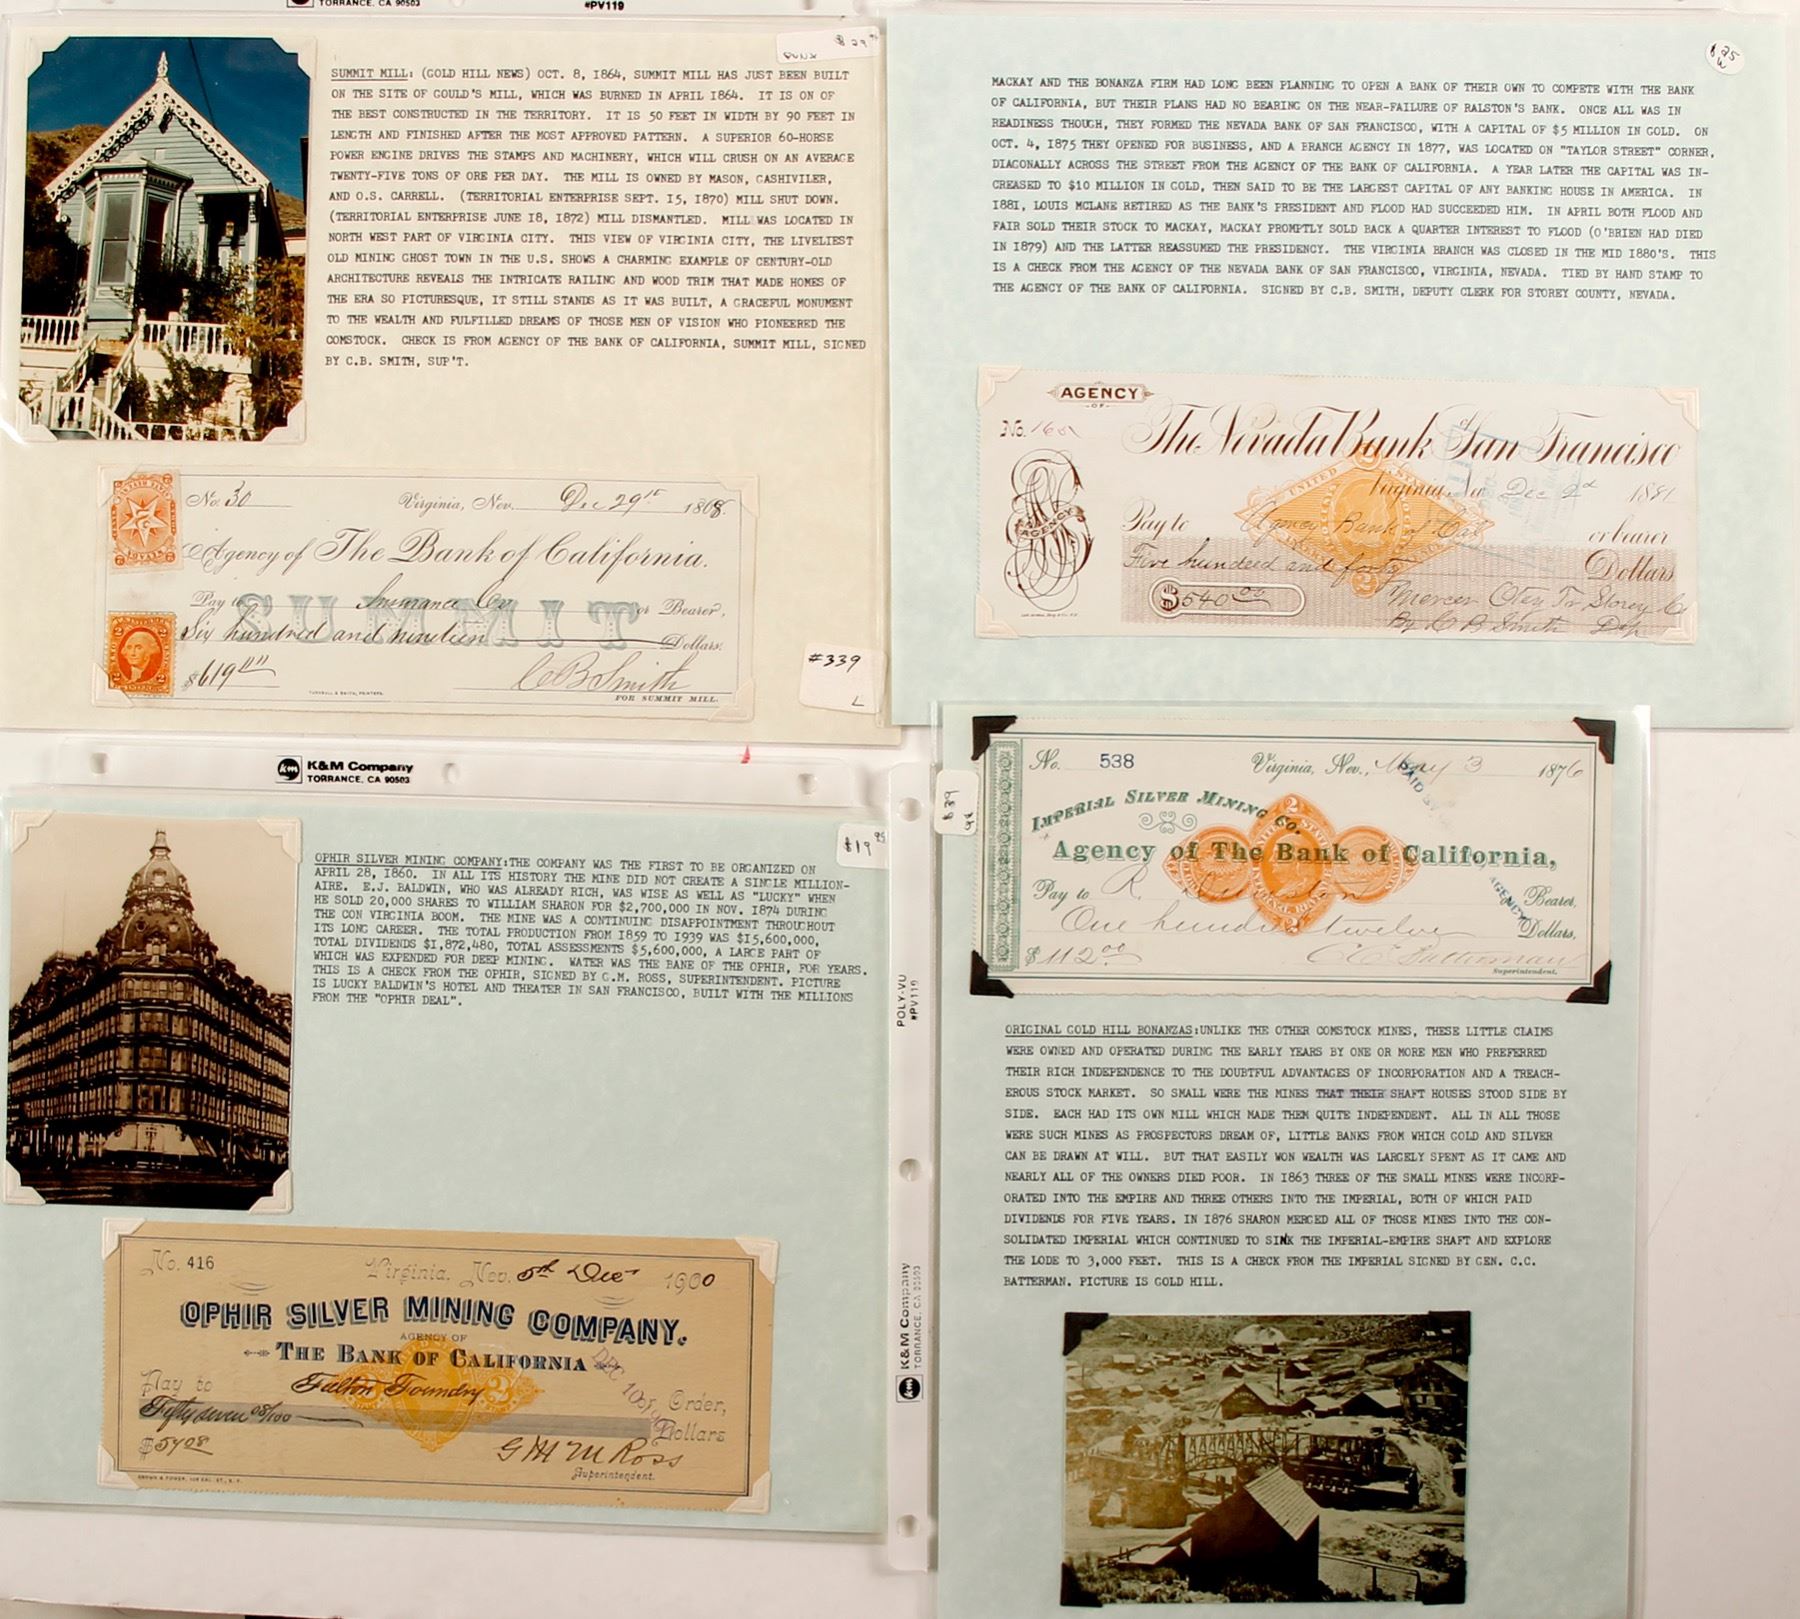 TORRANCE, CA 90503
#PV119
$29.95
SUMMIT MILL: (GOLD HILL NEWS) OCT. 8, 1864, SUMMIT MILL HAS JUST BEEN BUILT
ON THE SITE OF GOULD'S MILL, WHICH WAS BURNED IN APRIL 1864. IT IS ON OF
THE BEST CONSTRUCTED IN THE TERRITORY. IT IS 50 FEET IN WIDTH BY 90 FEET IN
LENGTH AND FINISHED AFTER THE MOST APPROVED PATTERN. A SUPERIOR 60-HORSE
POWER ENGINE DRIVES THE STAMPS AND MACHINERY, WHICH WILL CRUSH ON AN AVERAGE
TWENTY-FIVE TONS OF ORE PER DAY. THE MILL IS OWNED BY MASON, GASHIVILER,
AND O.S. CARRELL. (TERRITORIAL ENTERPRISE SEPT. 15, 1870) MILL SHUT DOWN.
(TERRITORIAL ENTERPRISE JUNE 18, 1872) MILL DISMANTLED. MILL WAS LOCATED IN
NORTH WEST PART OF VIRGINIA CITY. THIS VIEW OF VIRGINIA CITY, THE LIVELIEST
OLD MINING GHOST TOWN IN THE U.S. SHOWS A CHARMING EXAMPLE OF CENTURY-OLD
ARCHITECTURE REVEALS THE INTRICATE RAILING AND WOOD TRIM THAT MADE HOMES OF
THE ERA SO PICTURESQUE, IT STILL STANDS AS IT WAS BUILT, A GRACEFUL MONUMENT
TO THE WEALTH AND FULFILLED DREAMS OF THOSE MEN OF VISION WHO PIONEERED THE
COMSTOCK. CHECK IS FROM AGENCY OF THE BANK OF CALIFORNIA, SUMMIT MILL, SIGNED
BY C.B. SMITH, SUP'T.
No. 30 Virginia, Nev. Dec 29th 1868.
Agency of The Bank of California.
Pay to Insurance Co or Bearer,
SUMMIT
Six hundred and nineteen Dollars.
$619 "/"
C B Smith
TURNBULL & SMITH, PRINTERS.
FOR SUMMIT MILL.
#339
L
$25
MACKAY AND THE BONANZA FIRM HAD LONG BEEN PLANNING TO OPEN A BANK OF THEIR OWN TO COMPETE WITH THE BANK
OF CALIFORNIA, BUT THEIR PLANS HAD NO BEARING ON THE NEAR-FAILURE OF RALSTON'S BANK. ONCE ALL WAS IN
READINESS THOUGH, THEY FORMED THE NEVADA BANK OF SAN FRANCISCO, WITH A CAPITAL OF $5 MILLION IN GOLD. ON
OCT. 4, 1875 THEY OPENED FOR BUSINESS, AND A BRANCH AGENCY IN 1877, WAS LOCATED ON "TAYLOR STREET" CORNER,
DIAGONALLY ACROSS THE STREET FROM THE AGENCY OF THE BANK OF CALIFORNIA. A YEAR LATER THE CAPITAL WAS IN-
CREASED TO $10 MILLION IN GOLD, THEN SAID TO BE THE LARGEST CAPITAL OF ANY BANKING HOUSE IN AMERICA. IN
1881, LOUIS MCLANE RETIRED AS THE BANK'S PRESIDENT AND FLOOD HAD SUCCEEDED HIM. IN APRIL BOTH FLOOD AND
FAIR SOLD THEIR STOCK TO MACKAY, MACKAY PROMPTLY SOLD BACK A QUARTER INTEREST TO FLOOD (O'BRIEN HAD DIED
IN 1879) AND THE LATTER REASSUMED THE PRESIDENCY. THE VIRGINIA BRANCH WAS CLOSED IN THE MID 1880'S. THIS
IS A CHECK FROM THE AGENCY OF THE NEVADA BANK OF SAN FRANCISCO, VIRGINIA, NEVADA. TIED BY HAND STAMP TO
THE AGENCY OF THE BANK OF CALIFORNIA. SIGNED BY C.B. SMITH, DEPUTY CLERK FOR STOREY COUNTY, NEVADA.
AGENCY
OF
No.
The Nevada Bank of San Francisco
UNITED STATES
Virginia, Nev Dec 2d 1881
AGENCY
Pay to Agency Bank of Cal or bearer
Five hundred and forty Dollars
$540.00
Mercer Otey Tr Storey Co
By C B Smith Dep
K&M Company
TORRANCE, CA 90503
$19.95
OPHIR SILVER MINING COMPANY:THE COMPANY WAS THE FIRST TO BE ORGANIZED ON
APRIL 28, 1860. IN ALL ITS HISTORY THE MINE DID NOT CREATE A SINGLE MILLION-
AIRE. E.J. BALDWIN, WHO WAS ALREADY RICH, WAS WISE AS WELL AS "LUCKY" WHEN
HE SOLD 20,000 SHARES TO WILLIAM SHARON FOR $2,700,000 IN NOV. 1874 DURING
THE CON VIRGINIA BOOM. THE MINE WAS A CONTINUING DISAPPOINTMENT THROUGHOUT
ITS LONG CAREER. THE TOTAL PRODUCTION FROM 1859 TO 1939 WAS $15,600,000,
TOTAL DIVIDENDS $1,872,480, TOTAL ASSESSMENTS $5,600,000, A LARGE PART OF
WHICH WAS EXPENDED FOR DEEP MINING. WATER WAS THE BANE OF THE OPHIR, FOR YEARS.
THIS IS A CHECK FROM THE OPHIR, SIGNED BY G.M. ROSS, SUPERINTENDENT. PICTURE
IS LUCKY BALDWIN'S HOTEL AND THEATER IN SAN FRANCISCO, BUILT WITH THE MILLIONS
FROM THE "OPHIR DEAL".
No. 416 Virginia, Nev. 5th Dec 1900
OPHIR SILVER MINING COMPANY.
AGENCY OF
THE BANK OF CALIFORNIA
Pay to Fulton Foundry Order,
Fifty seven 08/100 Dollars
$57.08
Superintendent.
$39
POLY-VU
#PV119
K&M Company
TORRANCE, CA 90503
No. 538 Virginia, Nev., May 3 1876
PAID
IMPERIAL SILVER MINING CO.
Agency of The Bank of California,
Pay to R. Bearer,
AGENCY
One hundred twelve Dollars,
$112.00
Superintendent.
ORIGINAL GOLD HILL BONANZAS:UNLIKE THE OTHER COMSTOCK MINES, THESE LITTLE CLAIMS
WERE OWNED AND OPERATED DURING THE EARLY YEARS BY ONE OR MORE MEN WHO PREFERRED
THEIR RICH INDEPENDENCE TO THE DOUBTFUL ADVANTAGES OF INCORPORATION AND A TREACH-
EROUS STOCK MARKET. SO SMALL WERE THE MINES THAT THEIR SHAFT HOUSES STOOD SIDE BY
SIDE. EACH HAD ITS OWN MILL WHICH MADE THEM QUITE INDEPENDENT. ALL IN ALL THOSE
WERE SUCH MINES AS PROSPECTORS DREAM OF, LITTLE BANKS FROM WHICH GOLD AND SILVER
CAN BE DRAWN AT WILL. BUT THAT EASILY WON WEALTH WAS LARGELY SPENT AS IT CAME AND
NEARLY ALL OF THE OWNERS DIED POOR. IN 1863 THREE OF THE SMALL MINES WERE INCORP-
ORATED INTO THE EMPIRE AND THREE OTHERS INTO THE IMPERIAL, BOTH OF WHICH PAID
DIVIDENDS FOR FIVE YEARS. IN 1876 SHARON MERGED ALL OF THOSE MINES INTO THE CON-
SOLIDATED IMPERIAL WHICH CONTINUED TO SINK THE IMPERIAL-EMPIRE SHAFT AND EXPLORE
THE LODE TO 3,000 FEET. THIS IS A CHECK FROM THE IMPERIAL SIGNED BY GEN. C.C.
BATTERMAN. PICTURE IS GOLD HILL.